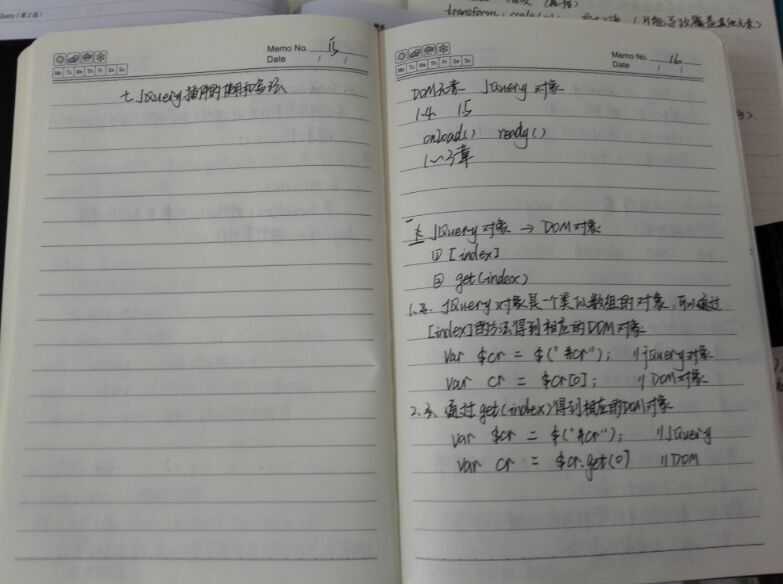 jQuery（第2版）
transform: scale
Memo No. 15
Date / /
Mo Tu We Th Fr Sa Su
七.jQuery插件的使用和写法
Memo No. 16
Date / /
Mo Tu We Th Fr Sa Su
DOM元素 jQuery对象
1.4 15
onload() ready()
1~3章
一、jQuery对象 → DOM对象
① [index]
② get(index)
1. jQuery对象是一个类似数组的对象，可以通过
[index]的方法得到相应的DOM对象
var $cr = $("#cr"); //jQuery对象
var cr = $cr[0]; //DOM对象
2. 通过get(index)得到相应的DOM对象
var $cr = $("#cr"); //jQuery
var cr = $cr.get(0) //DOM